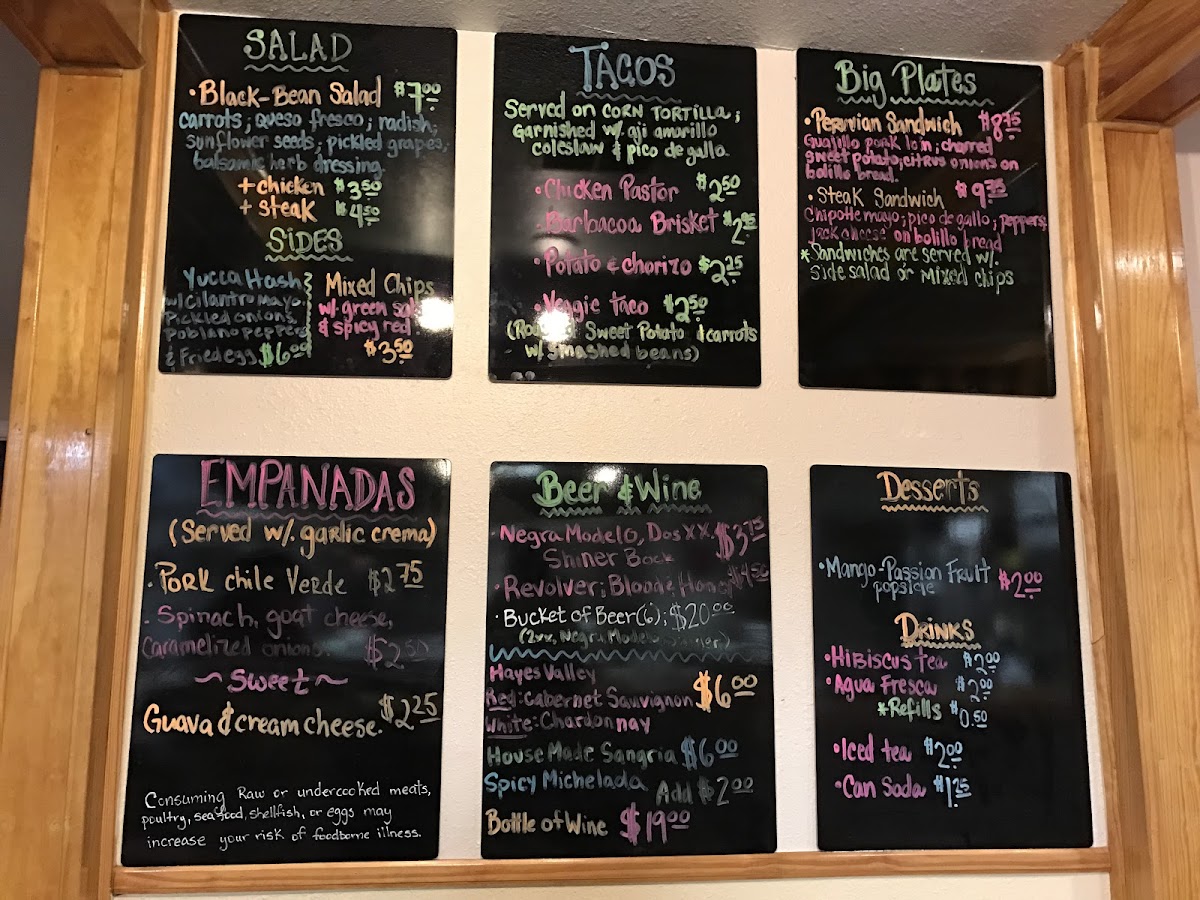 SALAD
• Black-Bean Salad $7.00
carrots; queso fresco; radish;
sunflower seeds; pickled grapes,
balsamic herb dressing.
+ chicken $3.50
+ steak $4.50
SIDES
Yucca Hash
w/ Cilantro Mayo,
Pickled onions,
poblano peppers
& Fried egg $6.00
Mixed Chips
w/ green
& spicy red
$3.50
TACOS
Served on CORN TORTILLA;
Garnished w/. aji amarillo
coleslaw & pico de gallo.
• Chicken Pastor $2.50
• Barbacoa Brisket
• Potato & chorizo $2.25
• Veggie taco $2.50
Sweet Potato & carrots
w/ smashed beans)
Big Plates
• Peruvian Sandwich $8.75
Guajillo pork loin; charred
sweet potato, citrus onions on
bolillo bread.
• Steak Sandwich $9.75
Chipotle mayo; pico de gallo; peppers,
jack cheese on bolillo bread
*Sandwiches are served w/.
Side salad or Mixed chips
EMPANADAS
(Served w/. garlic crema)
• Pork chile Verde $2.75
• Spinach, goat cheese,
Caramelized onions. $2.50
~ Sweet ~
Guava & cream cheese. $2.25
Consuming Raw or undercooked meats,
poultry, seafood, shellfish, or eggs may
increase your risk of foodborne illness.
Beer & Wine
• Negra Modelo, Dos XX. $3.75
Shiner Bock
• Revolver; Blood & Honey $4.50
• Bucket of Beer (6); $20.00
(2xx, Negra Modelo
Hayes Valley
Red: Cabernet Sauvignon $6.00
White: Chardonnay
House Made Sangria $6.00
Spicy Michelada Add $2.00
Bottle of Wine $19.00
Desserts
• Mango-Passion Fruit
popsicle $2.00
DRINKS
• Hibiscus tea $2.00
• Agua Fresca $2.00
*Refills $0.50
• Iced tea $2.00
• Can Soda $1.25